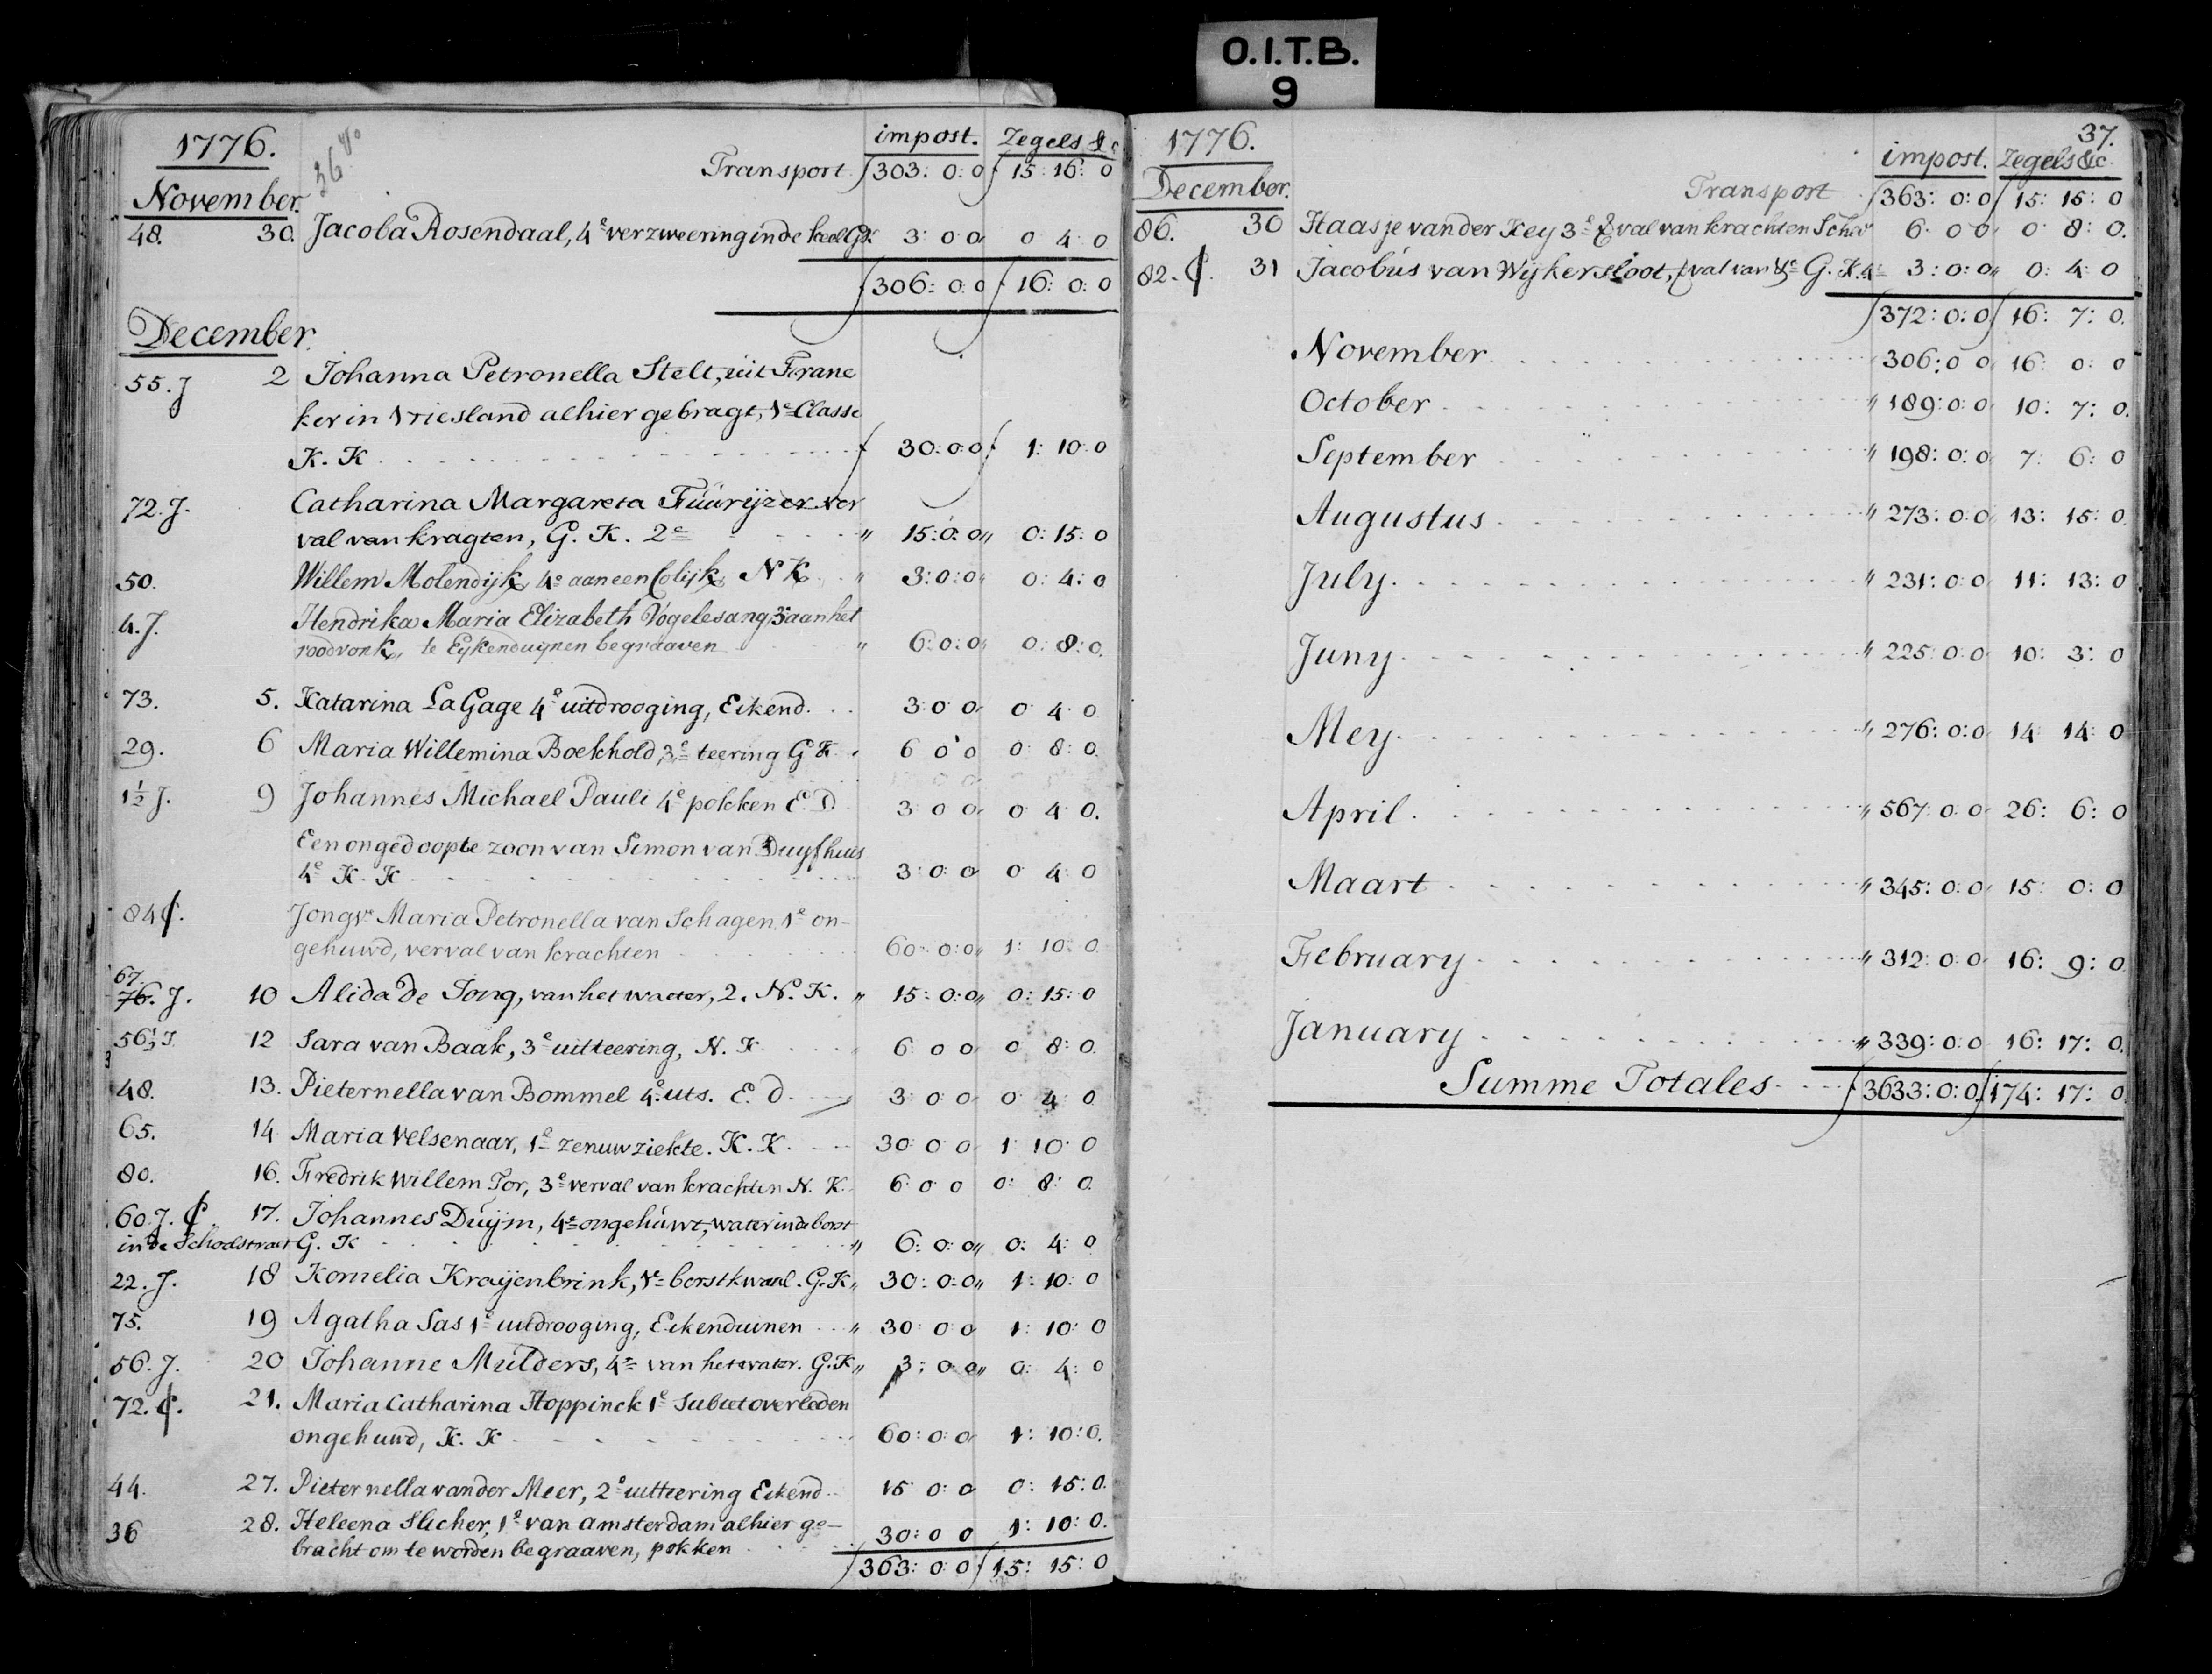 O.I.T.B.
9
1776.
impost. Zegels &c
Transport ƒ303:0:0 ƒ15:16:0
November.
48. 30. Jacoba Rosendaal, 4e verzweering in de keel GK 3:0:0 0:4:0
ƒ306:0:0 ƒ16:0:0
December.
55.J 2 Johanna Petronella Stelt, uit Frane
ker in Vriesland alhier gebragt, 1e Classe
K.K ƒ30:0:0 ƒ1:10:0
72.J. Catharina Margareta Fúúrijzer ver
val van kragten, G.K. 2e " 15:0:0 " 0:15:0
50. Willem Molendijk, 4e aan een Colijk, N K " 3:0:0 " 0:4:0
4.J. Hendrika Maria Elizabeth Vogelesang, 3e aan het
roodvonk, te Eijkenduijnen begraaven " 6:0:0 " 0:8:0.
73. 5. Katarina La Gage 4e uitdrooging, Eikend. 3:0:0 0:4:0
29. 6 Maria Willemina Boekhold, 3e teering G K 6:0:0 0:8:0.
1½ J. 9 Johannes Michael Pauli 4e pokken E.D 3:0:0 0:4:0.
Een ongedoopte zoon van Simon van Duyfhuis
4e K.K 3:0:0 0:4:0
84 C. Jongvr Maria Petronella van Schagen, 1e on-
gehuwd, verval van krachten 60:0:0 " 1:10:0.
67
76. J. 10 Alida de Jong, van het waeter, 2. No. K. " 15:0:0 " 0:15:0
56½ J. 12 Sara van Baak, 3e uitteering, N.K 6:0:0 0:8:0.
48. 13. Pieternella van Bommel 4e uts. E.D. 3:0:0 0:4:0
65. 14 Maria Velsenaar, 1e zenuwziekte. K.K. 30:0:0 1:10:0
80. 16. Fredrik Willem Tor, 3e verval van krachten N.K. 6:0:0 0:8:0.
60.J. C. 17. Johannes Dúijm, 4e ongehúwt, water in de borst
in de Schoolstraet G.K " 6:0:0 " 0:4:0
22.J. 18 Kornelia Kraijenbrink, 1e borstkwaal. G.K " 30:0:0 " 1:10:0
75. 19 Agatha Sas 1e uitdrooging, Eikenduinen " 30:0:0 1:10:0
56.J. 20 Johanne Múlders, 4e van het water. G.K " 3:0:0 " 0:4:0
72.C. 21. Maria Catharina Hoppinck 1e Subiet overleden
ongehuwd, K.K 60:0:0 1:10:0.
44. 27. Pieternella van der Meer, 2e uitteering Eikend. 15:0:0 0:15:0.
36 28. Heleena Slicher, 1e van Amsterdam alhier ge-
bracht om te worden begraaven, pokken 30:0:0 1:10:0.
ƒ363:0:0 ƒ15:15:0
37.
1776.
impost. Zegels &c.
December.
Transport ƒ363:0:0 ƒ15:15:0
86. 30 Haasje van der Key 3e val van krachten Schev 6:0:0 0:8:0.
82.C. 31 Jacobús van Wijkersloot, val van G.K. 4e 3:0:0 " 0:4:0
ƒ372:0:0 ƒ16:7:0.
November 306:0:0 16:0:0
October " 189:0:0 10:7:0.
September " 198:0:0 7:6:0
Augustus " 273:0:0 13:15:0
July " 231:0:0 11:13:0
Juny " 225:0:0 10:3:0
Mey " 276:0:0 14:14:0
April " 567:0:0 26:6:0
Maart " 345:0:0 15:0:0
February " 312:0:0 16:9:0
January " 339:0:0 16:17:0.
Summe Totales ƒ3633:0:0 ƒ174:17:0.